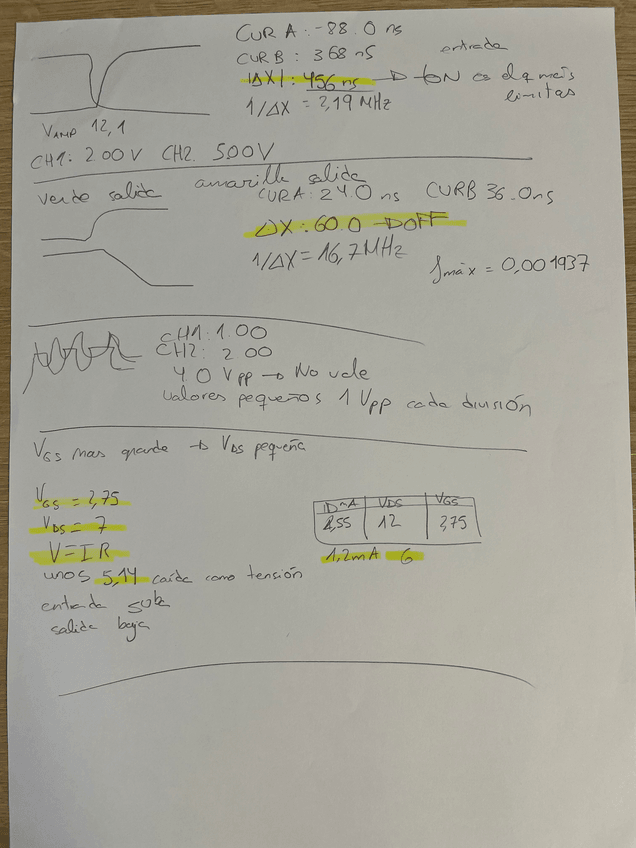 CUR A: -88.0 ns
CUR B: 368 nS
entrada
|ΔX|: 456 ns → tON es el q más limitas
1/ΔX = 2,19 MHz
VAMP 12,1
CH1: 200V CH2 500V
verde salida amarilla salida
CURA: 24.0 ns CURB 36.0ns
ΔX: 60.0 → OFF
1/ΔX = 16,7 MHz
fmáx = 0,001937
CH1: 1.00
CH2: 2 00
4.0 Vpp → No vale
valores pequeños 1 Vpp cada división
VGS mas grande → VDS pequeña
VGS = 2,75
VDS = 7
V = I R
unos 5,14 caída como tensión
entrada sube
salida baja
ID mA VDS VGS
12 2,75
1,2mA 6